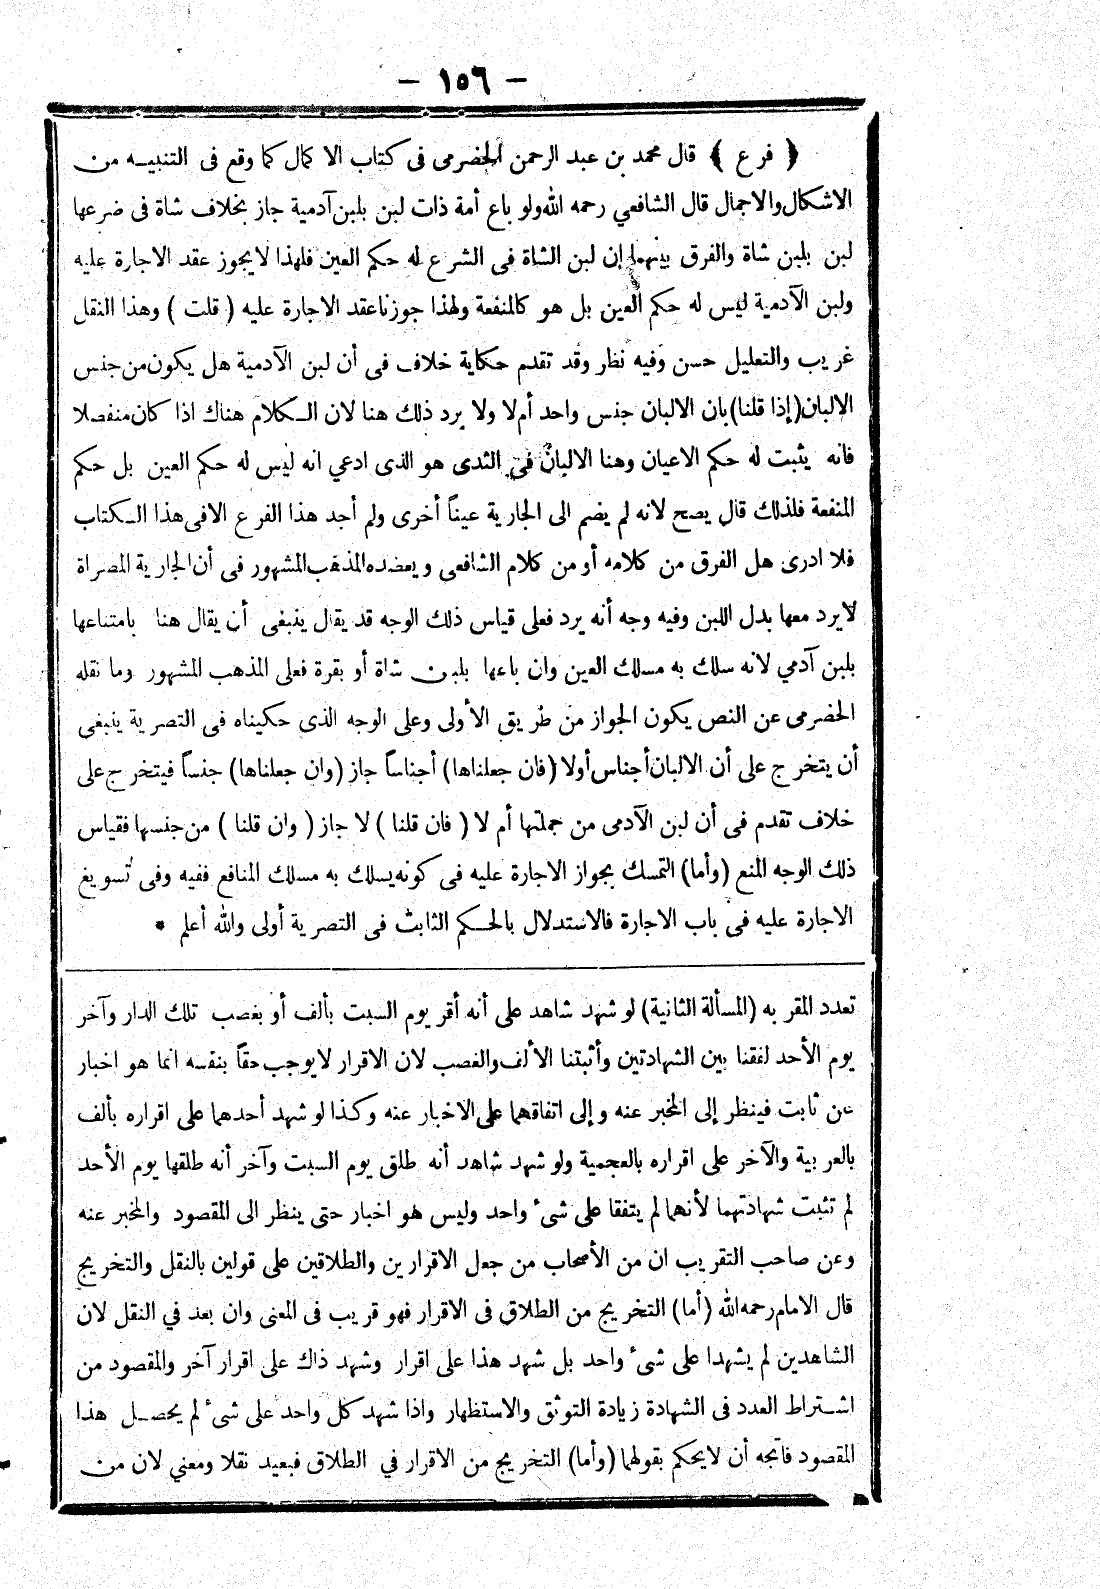 - ١٥٦ -
﴿ فرع ﴾ قال محمد بن عبد الرحمن الحضرمى فى كتاب الا كمال كما وقع فى التنبيه من
الاشكال والاجمال قال الشافعي رحمه الله ولو باع أمة ذات لبن بلبن آدمية جاز بخلاف شاة فى ضرعها
لبن بلبن شاة والفرق بينهما إن لبن الشاة فى الشرع له حكم العين فلهذا لايجوز عقد الاجارة عليه
ولبن الآدمية ليس له حكم العين بل هو كالمنفعة ولهذا جوزنا عقد الاجارة عليه ( قلت ) وهذا النقل
غريب والتعليل حسن وفيه نظر وقد تقدم حكاية خلاف فى أن لبن الآدمية هل يكون من جنس
الالبان (إذا قلنا) بان الالبان جنس واحد أم لا ولا يرد ذلك هنا لان الكلام هناك اذا كان منفصلا
فانه يثبت له حكم الاعيان وهنا الالبان فى الثدى هو الذى ادعي انه ليس له حكم العين بل حكم
المنفعة فلذلك قال يصح لانه لم يضم الى الجارية عيناً أخرى ولم أجد هذا الفرع الا فى هذا الكتاب
فلا ادرى هل الفرق من كلامه أو من كلام الشافعى ويعضده المذهب المشهور فى أن الجارية المصراة
لا يرد معها بدل اللبن وفيه وجه أنه يرد فعلى قياس ذلك الوجه قد يقال ينبغى أن يقال هنا بامتناعها
بلبن آدمي لانه سلك به مسلك العين وان باعها بلبن شاة أو بقرة فعلى المذهب المشهور وما نقله
الحضرمى عن النص يكون الجواز من طريق الأولى وعلى الوجه الذى حكيناه فى التصرية ينبغى
أن يتخرج على أن الالبان أجناس أولا (فان جعلناها) أجناساً جاز (وان جعلناها) جنساً فيتخرج على
خلاف تقدم فى أن لبن الآدمى من جملتها أم لا ( فان قلنا ) لا جاز ( وان قلنا ) من جنسها فقياس
ذلك الوجه المنع (وأما) التمسك بجواز الاجارة عليه فى كونه يسلك به مسلك المنافع ففيه وفى تسويغ
الاجارة عليه فى باب الاجارة فالاستدلال بالحكم الثابت فى التصرية أولى والله أعلم *
تعدد المقر به (المسألة الثانية) لو شهد شاهد على أنه أقر يوم السبت بألف أو بغصب تلك الدار وآخر
يوم الأحد لفقنا بين الشهادتين وأثبتنا الألف والغصب لان الاقرار لا يوجب حقاً بنفسه انما هو اخبار
عن ثابت فينظر إلى المخبر عنه وإلى اتفاقهما على الاخبار عنه وكذا لو شهد أحدهما على اقراره بألف
بالعربية والآخر على اقراره بالعجمية ولو شهد شاهد أنه طلق يوم السبت وآخر أنه طلقها يوم الأحد
لم تثبت شهادتهما لأنهما لم يتفقا على شىء واحد وليس هو اخبار حتى ينظر الى المقصود والمخبر عنه
وعن صاحب التقريب ان من الأصحاب من جعل الاقرارين والطلاقين على قولين بالنقل والتخريج
قال الامام رحمه الله (أما) التخريج من الطلاق فى الاقرار فهو قريب فى المعنى وان بعد في النقل لان
الشاهدين لم يشهدا على شىء واحد بل شهد هذا على اقرار وشهد ذاك على اقرار آخر والمقصود من
اشتراط العدد فى الشهادة زيادة التوثق والاستظهار واذا شهد كل واحد على شىء لم يحصل هذا
المقصود فاتجه أن لايحكم بقولهما (وأما) التخريج من الاقرار في الطلاق فبعيد نقلا ومعني لان من